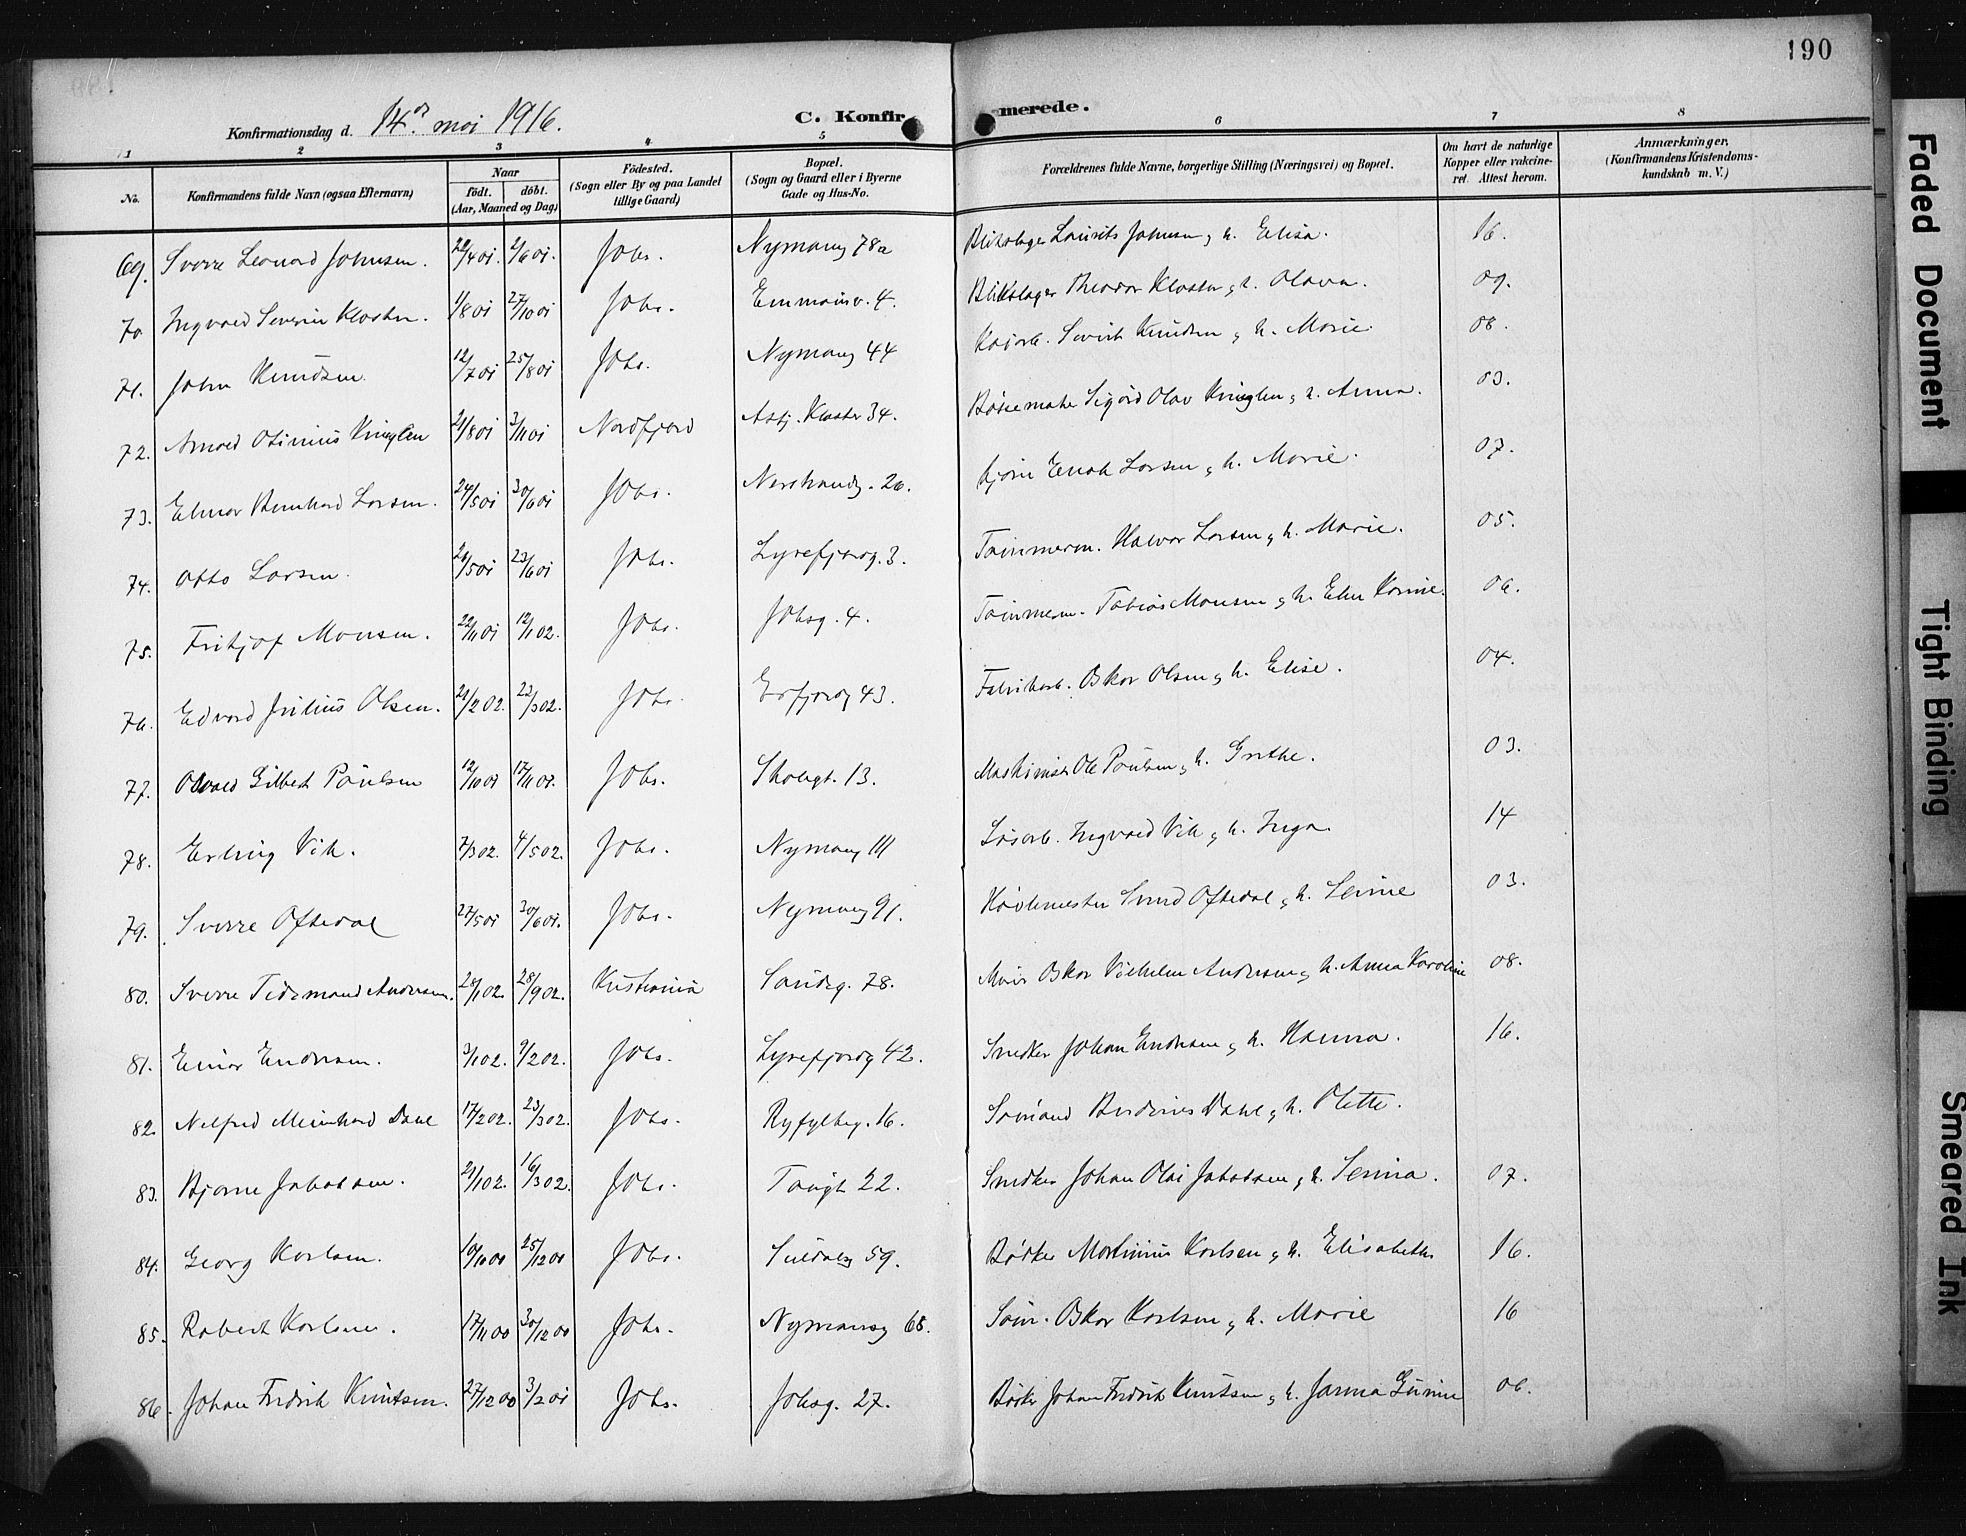 190
Konfirmationsdag d. 14de mai 1916. C. Konfirmerede.
1 2 3 4 5 6 7 8
No. Konfirmandens fulde Navn (ogsaa Efternavn) Naar født. døbt. (Aar, Maaned og Dag) Fødested. (Sogn eller By og paa Landet tillige Gaard) Bopæl. (Sogn og Gaard eller i Byerne Gade og Hus-No. Forældrenes fulde Navne, borgerlige Stilling (Næringsvei) og Bopæl. Om havt de naturlige Kopper eller vakcineret. Attest herom. Anmærkninger. (Konfirmandens Kristendomskundskab m. V.)
69. Sverre Leonard Johnsen. 22/4 01. 2/6 01. Johs. Nymansg 78a Blikslager Laurits Johnsen g h. Elisa. 16.
70. Ingvald Severin Kloster. 1/8 01 27/10 01 Johs. Emmausv. 4. Blikslager Theodor Kloster g h. Olava. 09.
71. John Knudsen. 12/7 01 25/8 01 Johs. Nymansg 44 Knudsen g h. Marie. 08.
72. 21/8 01 3/11 01 Nordfjord Astj. Kloster 34. Sigurd Olav g h. Anna. 03.
73. Elmar Bernhard Larsen. 24/5 01 30/6 01 Johs. 20. Enok Larsen g h. Marie. 07.
74. Otto Larsen. 23/6 01 Johs. Lysefjordg. 3. Tømmerm. Halvor Larsen g h. Marie. 05.
75. Fritjof Monsen. 22/11 01 12/1 02. Johs. Johsg. 4. Tømmerm. Tobias Monsen g h. Elen Karine. 06.
76. Edvard Julius Olsen. 21/2 02. 22/3 02. Johs. Erfjordg 43. Fabrikarb. Oskar Olsen g h. Elise. 04.
77. Osvald Gilbert Paulsen 12/10 01 17/11 01. Johs. Skolegt. 13. Maskinist Ole Paulsen g h. Grethe. 03.
78. Erling Vik. 7/3 02. 4/5 02. Johs. Nymansg 111 Løsarb. Ingvald Vik g h. Inga. 14
79. Sverre Oftedal 27/5 01 30/6 01. Johs. Nymansg 91. Svend Oftedal g h. Serine 03.
80. Sverre Tidemand Andersen. 28/1 02. 28/9 02. Kristiania Sandsg. 78. Oskar Vilhelm Andersen g h. Anna Karoline 08.
81. Einar Endresen. 3/1 02. 9/2 02. Johs. Lysefjordg 42. Snedker Johan Endresen g h. Hanna. 16.
82. Nelfred Meinhard Dahl 17/2 02. 23/3 02. Johs. Ryfylkeg. 16. Sømand Dahl g h. Olette.
83. Bjarne Jakobsen. 21/1 02. 16/3 02. Johs. Taugt 22. Snedker Johan Olai Jakobsen g h. Serina. 07.
84. Georg Karlsen. 10/11 00 25/12 00 Johs. Suldalsg 59. Bødker Martinius Karlsen g h. Elisabeth 16.
85. Robert Karlsen. 17/11 00 30/12 00 Johs. Nymansg 68. Søm. Oskar Karlsen g h. Marie 16
86. Johan Fredrik Knutsen. 27/12 00 3/2 01 Johs. Johsg. 27. Bødker Johan Fredrik Knutsen g h. Janna Gurine 06.
Faded Document
Tight Binding
Smeared Ink